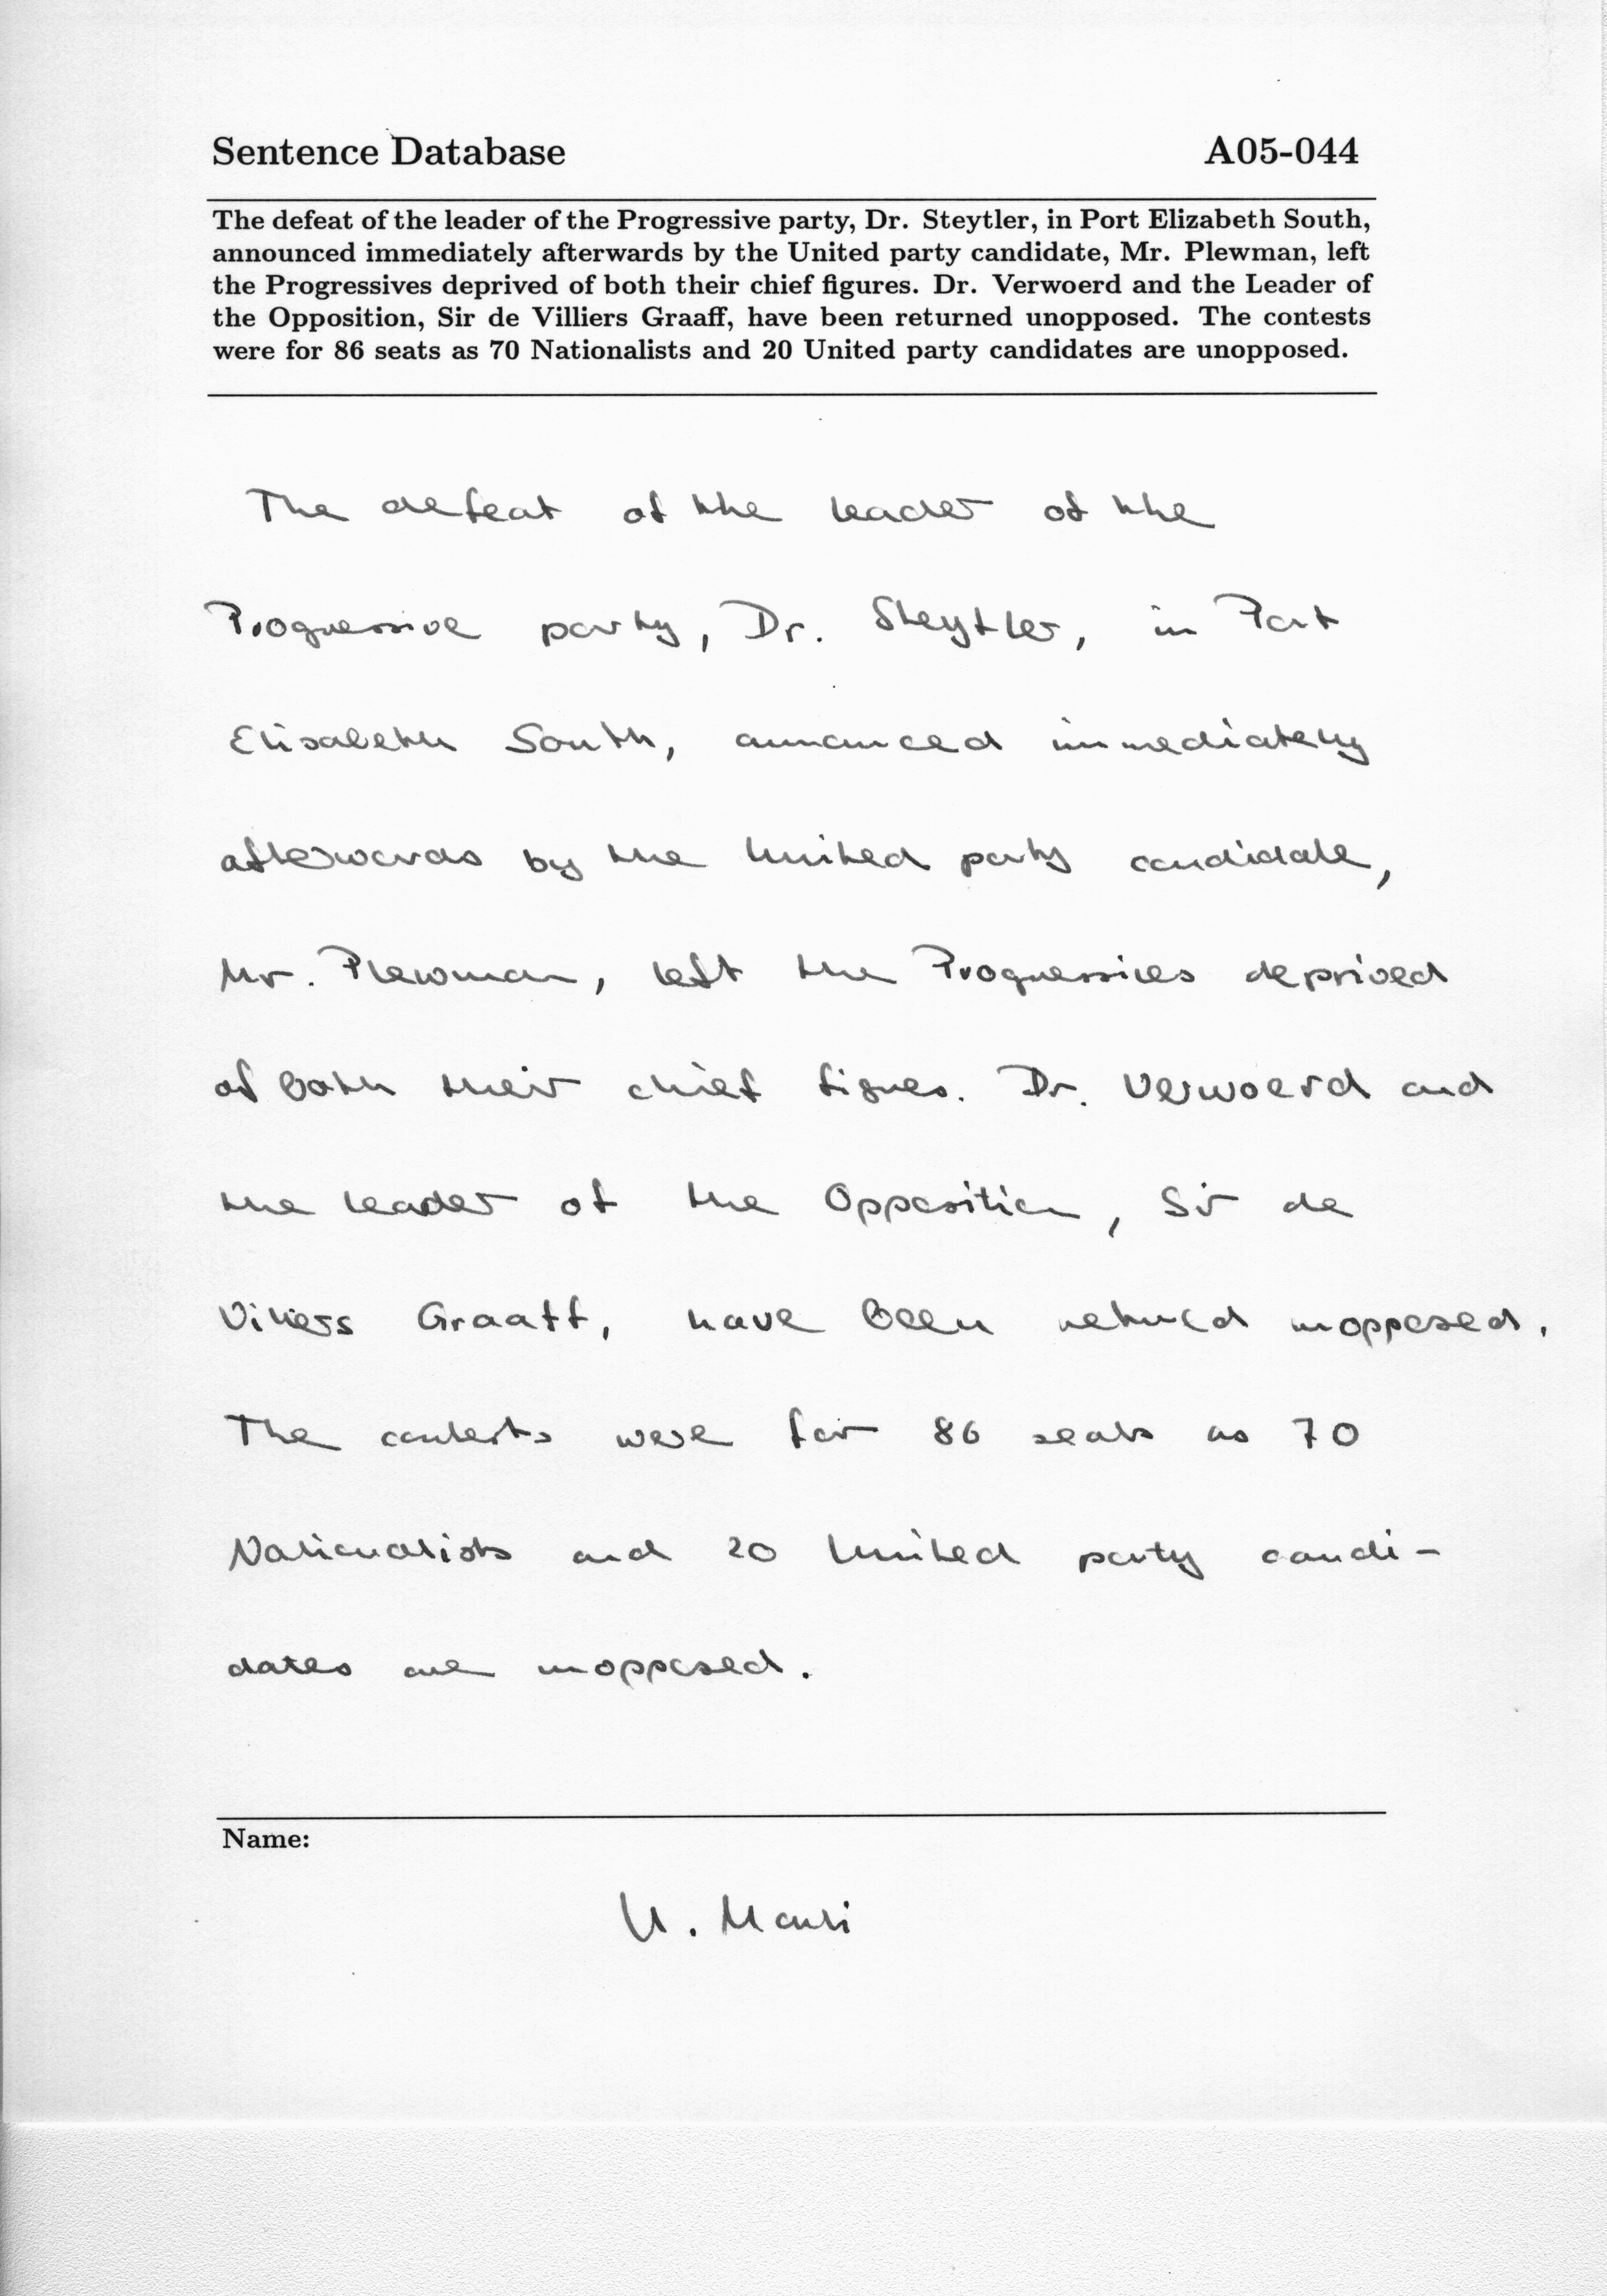 Sentence Database A05-044
The defeat of the leader of the Progressive party, Dr. Steytler, in Port Elizabeth South,
announced immediately afterwards by the United party candidate, Mr. Plewman, left
the Progressives deprived of both their chief figures. Dr. Verwoerd and the Leader of
the Opposition, Sir de Villiers Graaff, have been returned unopposed. The contests
were for 86 seats as 70 Nationalists and 20 United party candidates are unopposed.
The defeat of the leader of the
Progressive party, Dr. Steytler, in Port
Elisabeth South, announced immediately
afterwards by the United party candidate,
Mr. Plewman, left the Progressives deprived
of both their chief figures. Dr. Verwoerd and
the leader of the Opposition, Sir de
Villiers Graaff, have been returned unopposed.
The contests were for 86 seats as 70
Nationalists and 20 United party candi-
dates are unopposed.
Name: